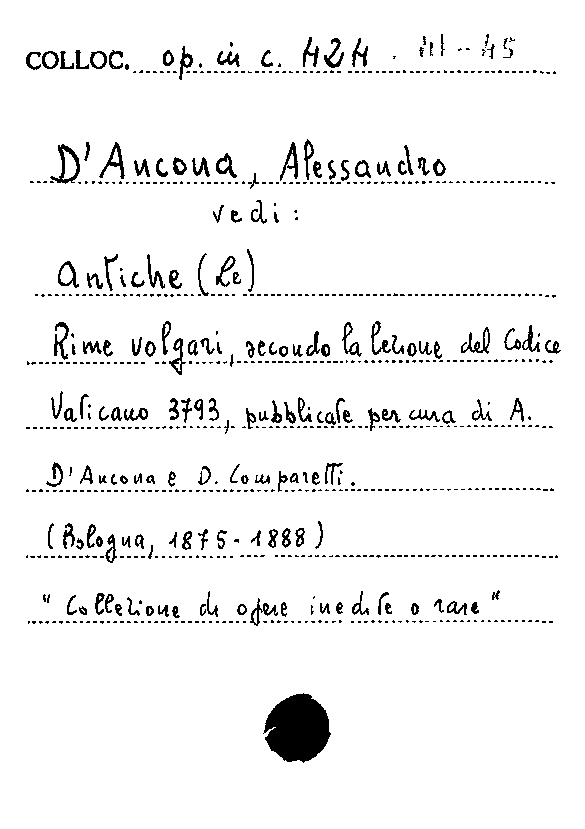 COLLOC. op. in c. 424. 41-45
D'Ancona, Alessandro
vedi:
Antiche (Le)
Rime volgari, secondo la lezione del Codice
Vaticano 3793, pubblicate per cura di A.
D'Ancona e D. Comparetti.
(Bologna, 1875-1888)
"Collezione di opere inedite o rare"